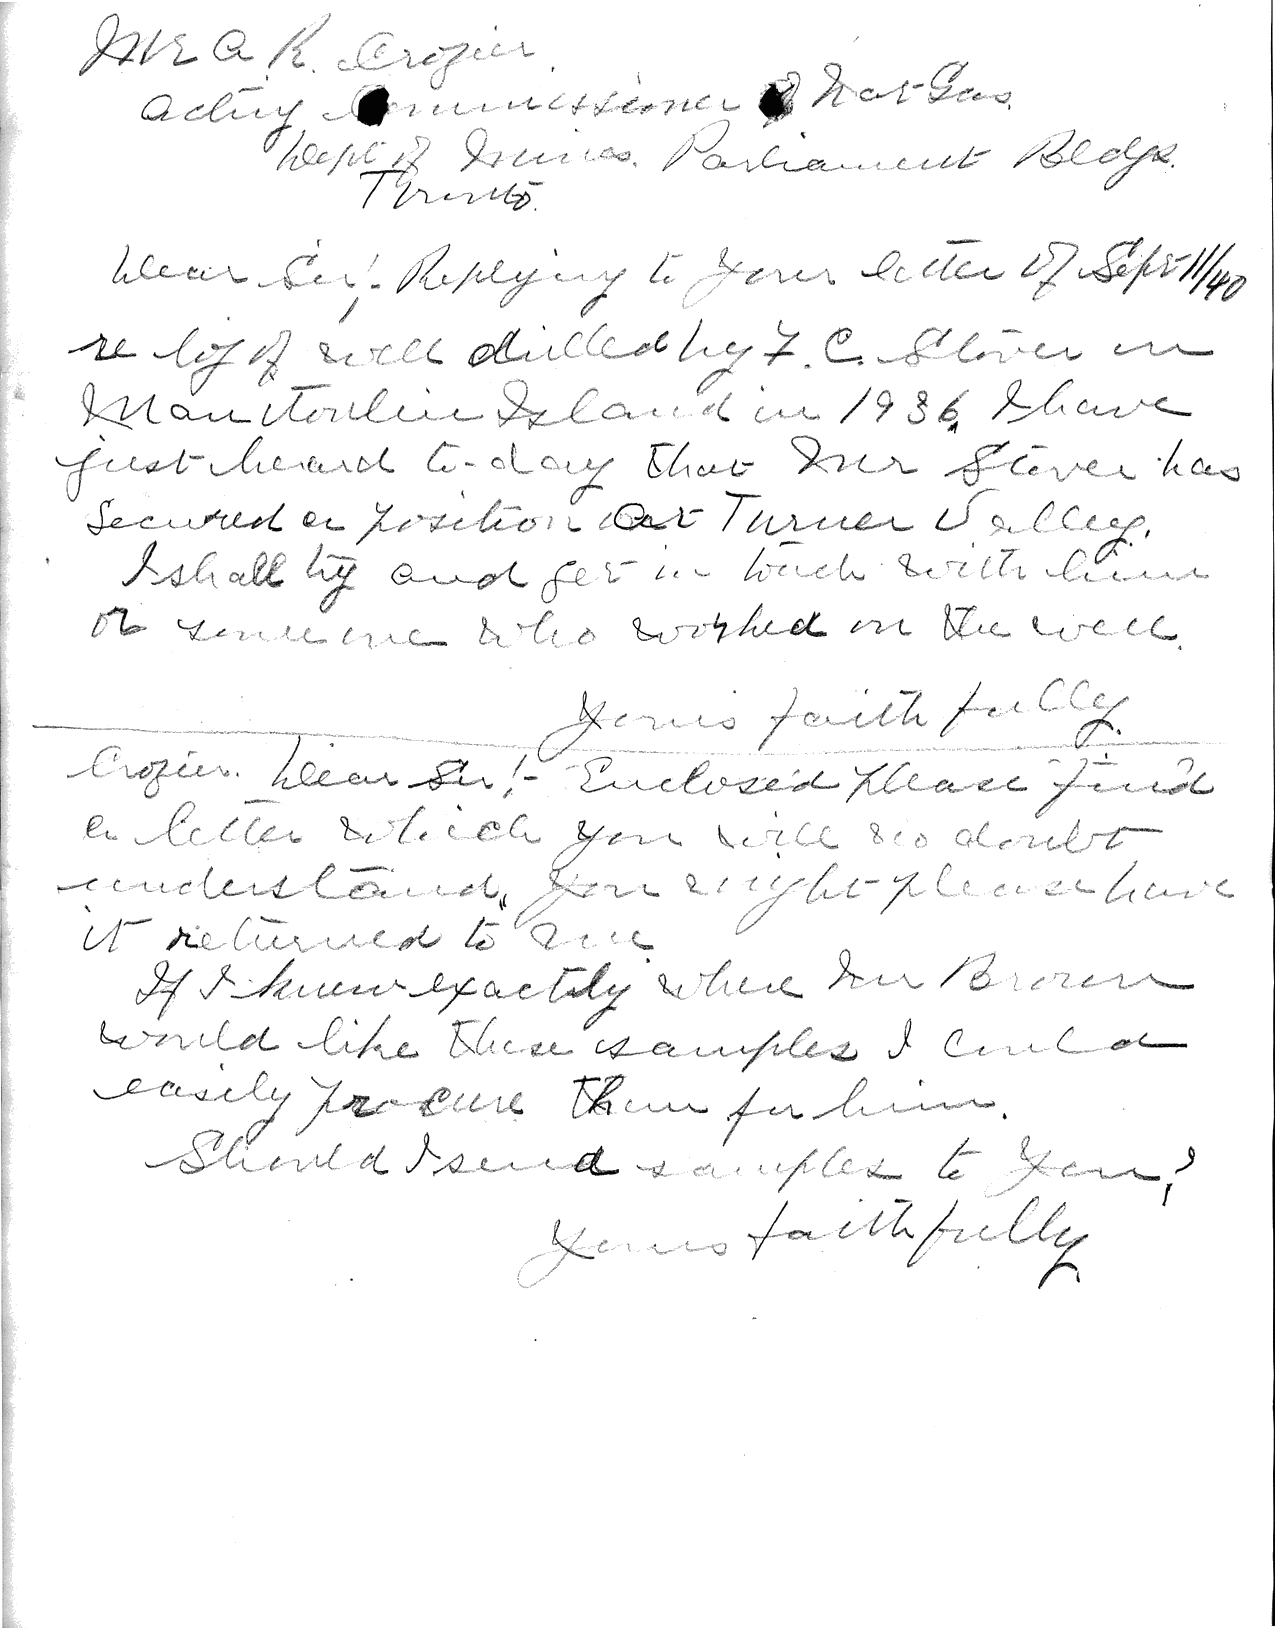 Mr A R. Crozier.
Acting Commissioner of Nat Gas.
Dept of Mines. Parliament Bldgs.
Toronto.
Dear Sir! - Replying to your letter of Sept 11/40
re log of well drilled by F. C. Stover on
Manitoulin Island in 1936, I have
just heard to-day that Mr Stover has
secured a position at Turner Valley.
I shall try and get in touch with him
or someone who worked on the well.
Yours faithfully.
Crozier. Dear Sir! - Enclosed please find
a letter which you will no doubt
understand, you might please have
it returned to me
If I knew exactly where Mr Brown
would like these samples I could
easily procure them for him.
Should I send samples to you?
Yours faithfully